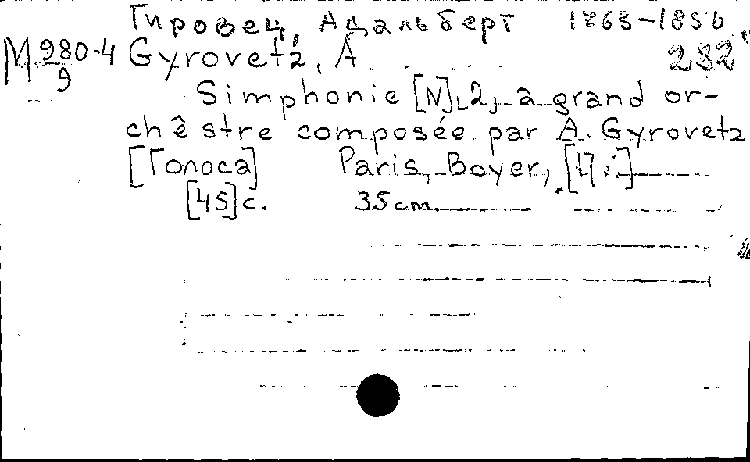 Гировец, Адальберт 1763-1850
М 980-4 Gyrovetz, A
9 232
Simphonie [N] 2, a grand or-
chêstre composée par A. Gyrovetz
[Голоса] Paris, Boyer, [17..]
[45] с. 35 cm.